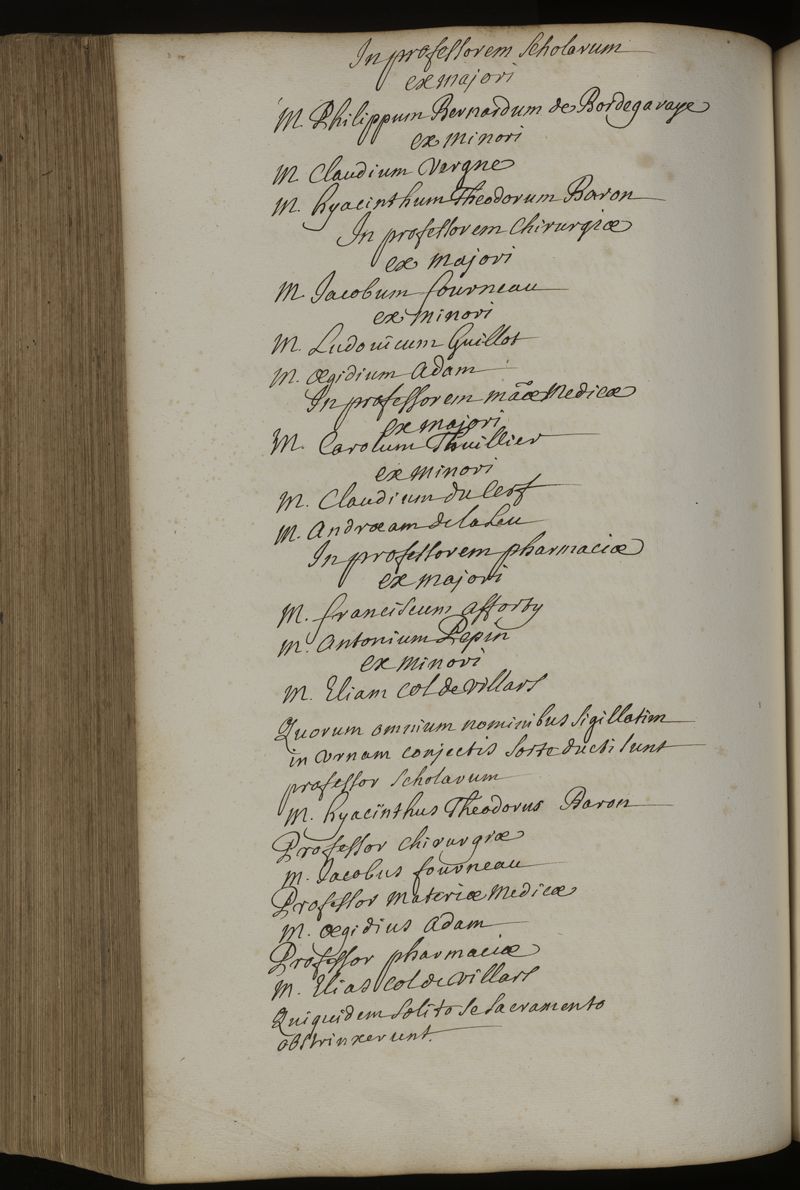 In professorem Scholarum
ex majori
M. Philippum Bernardum de Bordegaraye
ex minori
M. Claudium Vergne
M. hyacinthum Theodorum Baron
In professorem Chirurgiæ
ex majori
M. Jacobum fourneau
ex minori
M. Ludovicum Guillot
M. ægidium Adam
In professorem mãæ Medicæ
ex majori
M. Carolum Thuillier
ex minori
M. Claudium du Cerf
M. Andræam de laleu
In professorem pharmaciæ
ex majori
M. franciscum afforty
M. Antonium Pepin
ex minori
M. Eliam Col de Villars
Quorum omnium nominibus sigillatim
in Vrnam conjectis sorte ducti sunt
professor Scholarum
M. hyacinthus Theodorus Baron
Professor Chirurgiæ
M. Jacobus fourneau
Professor Materiæ Medicæ
M. ægidius Adam
Professor pharmaciæ
M. Elias Col de Villars
Qui quidem solito se sacramento
obstrinxerunt.